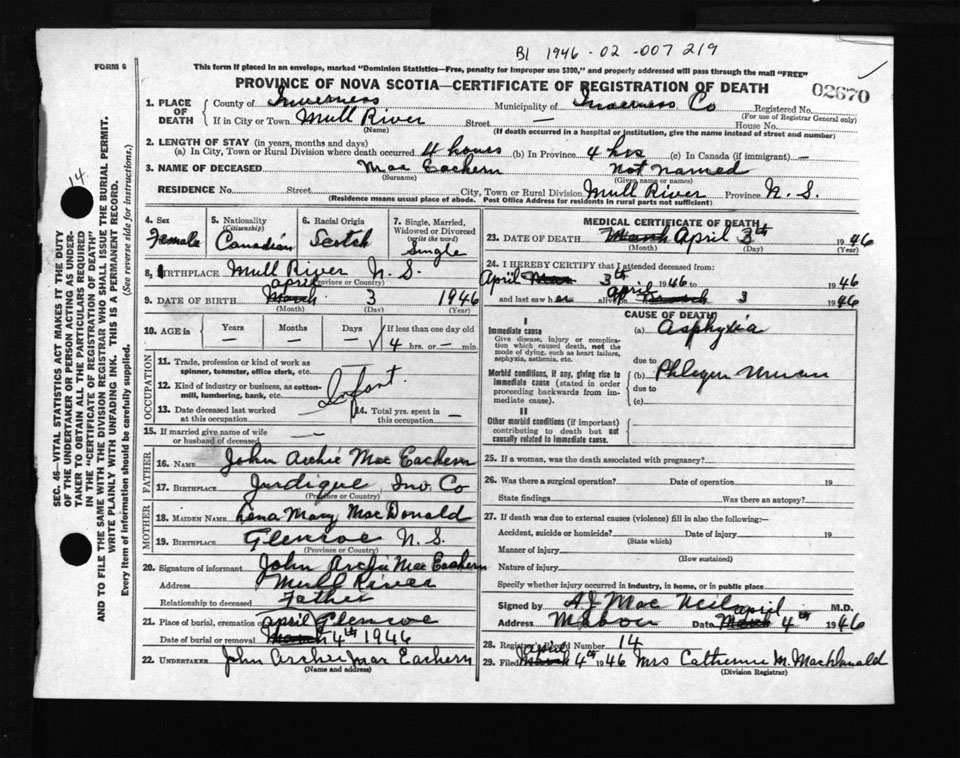 B1 1946 - 02 - 007219
FORM 6
This form if placed in an envelope, marked "Dominion Statistics—Free, penalty for improper use $300," and properly addressed will pass through the mail "FREE"
PROVINCE OF NOVA SCOTIA—CERTIFICATE OF REGISTRATION OF DEATH
02670
1. PLACE OF DEATH
County of Inverness Municipality of Inverness Co Registered No.
(For use of Registrar General only)
If in City or Town Mull River Street — House No.
(Name) (If death occurred in a hospital or institution, give the name instead of street and number)
2. LENGTH OF STAY (in years, months and days)
(a) In City, Town or Rural Division where death occurred 4 hours (b) In Province 4 hrs (c) In Canada (if immigrant) —
3. NAME OF DECEASED Mac Eachern Not named
(Surname) (Given name or names)
RESIDENCE No. Street City, Town or Rural Division Mull River Province N. S.
(Residence means usual place of abode. Post Office Address for residents in rural parts not sufficient)
4. Sex Female
5. Nationality (Citizenship) Canadian
6. Racial Origin Scotch
7. Single, Married, Widowed or Divorced (write the word) Single
8. BIRTHPLACE Mull River N. S.
(Province or Country)
9. DATE OF BIRTH March April 3 1946
(Month) (Day)
10. AGE in Years Months Days If less than one day old
— — — 4 hrs. or — min.
OCCUPATION
11. Trade, profession or kind of work as spinner, teamster, office clerk, etc.
12. Kind of industry or business, as cotton-mill, lumbering, bank, etc.
Infant
13. Date deceased last worked at this occupation
14. Total yrs. spent in this occupation —
15. If married give name of wife or husband of deceased —
FATHER
16. NAME John Archie Mac Eachern
17. BIRTHPLACE Judique Inv. Co
(Province or Country)
MOTHER
18. MAIDEN NAME Lena Mary MacDonald
19. BIRTHPLACE Glencoe N. S.
(Province or Country)
20. Signature of informant John Archie Mac Eachern
Address Mull River
Relationship to deceased Father
21. Place of burial, cremation or Glencoe
Date of burial or removal March April 4th 1946
22. UNDERTAKER John Archie Mac Eachern
(Name and address)
MEDICAL CERTIFICATE OF DEATH
23. DATE OF DEATH March April 3th 1946
(Month) (Day)
24. I HEREBY CERTIFY that I attended deceased from:
April 3th 1946 to 1946
and last saw her alive on April March 3 1946
CAUSE OF DEATH
I
Immediate cause
Give disease, injury or complication which caused death, not the mode of dying, such as heart failure, asphyxia, asthenia, etc.
(a) Asphyxia
due to
Morbid conditions, if any, giving rise to immediate cause (stated in order proceeding backwards from immediate cause).
(b)
due to
(c)
II
Other morbid conditions (if important) contributing to death but not causally related to immediate cause.
25. If a woman, was the death associated with pregnancy?
26. Was there a surgical operation? Date of operation 19
State findings Was there an autopsy?
27. If death was due to external causes (violence) fill in also the following:—
Accident, suicide or homicide? Date of injury 19
(State which)
Manner of injury
(How sustained)
Nature of injury
Specify whether injury occurred in industry, in home, or in public place
Signed by A J Mac Neil M.D.
Address Mabou Date March April 4th 1946
28. Registration Record Number 14
29. Filed March April 4th 1946 Mrs Catherine M. MacDonald
(Division Registrar)
14
SEC. 46—VITAL STATISTICS ACT MAKES IT THE DUTY
OF THE UNDERTAKER OR PERSON ACTING AS UNDERTAKER TO OBTAIN ALL THE PARTICULARS REQUIRED
IN THE "CERTIFICATE OF REGISTRATION OF DEATH"
AND TO FILE THE SAME WITH THE DIVISION REGISTRAR WHO SHALL ISSUE THE BURIAL PERMIT.
WRITE PLAINLY WITH UNFADING INK. THIS IS A PERMANENT RECORD.
Every item of information should be carefully supplied. (See reverse side for instructions.)